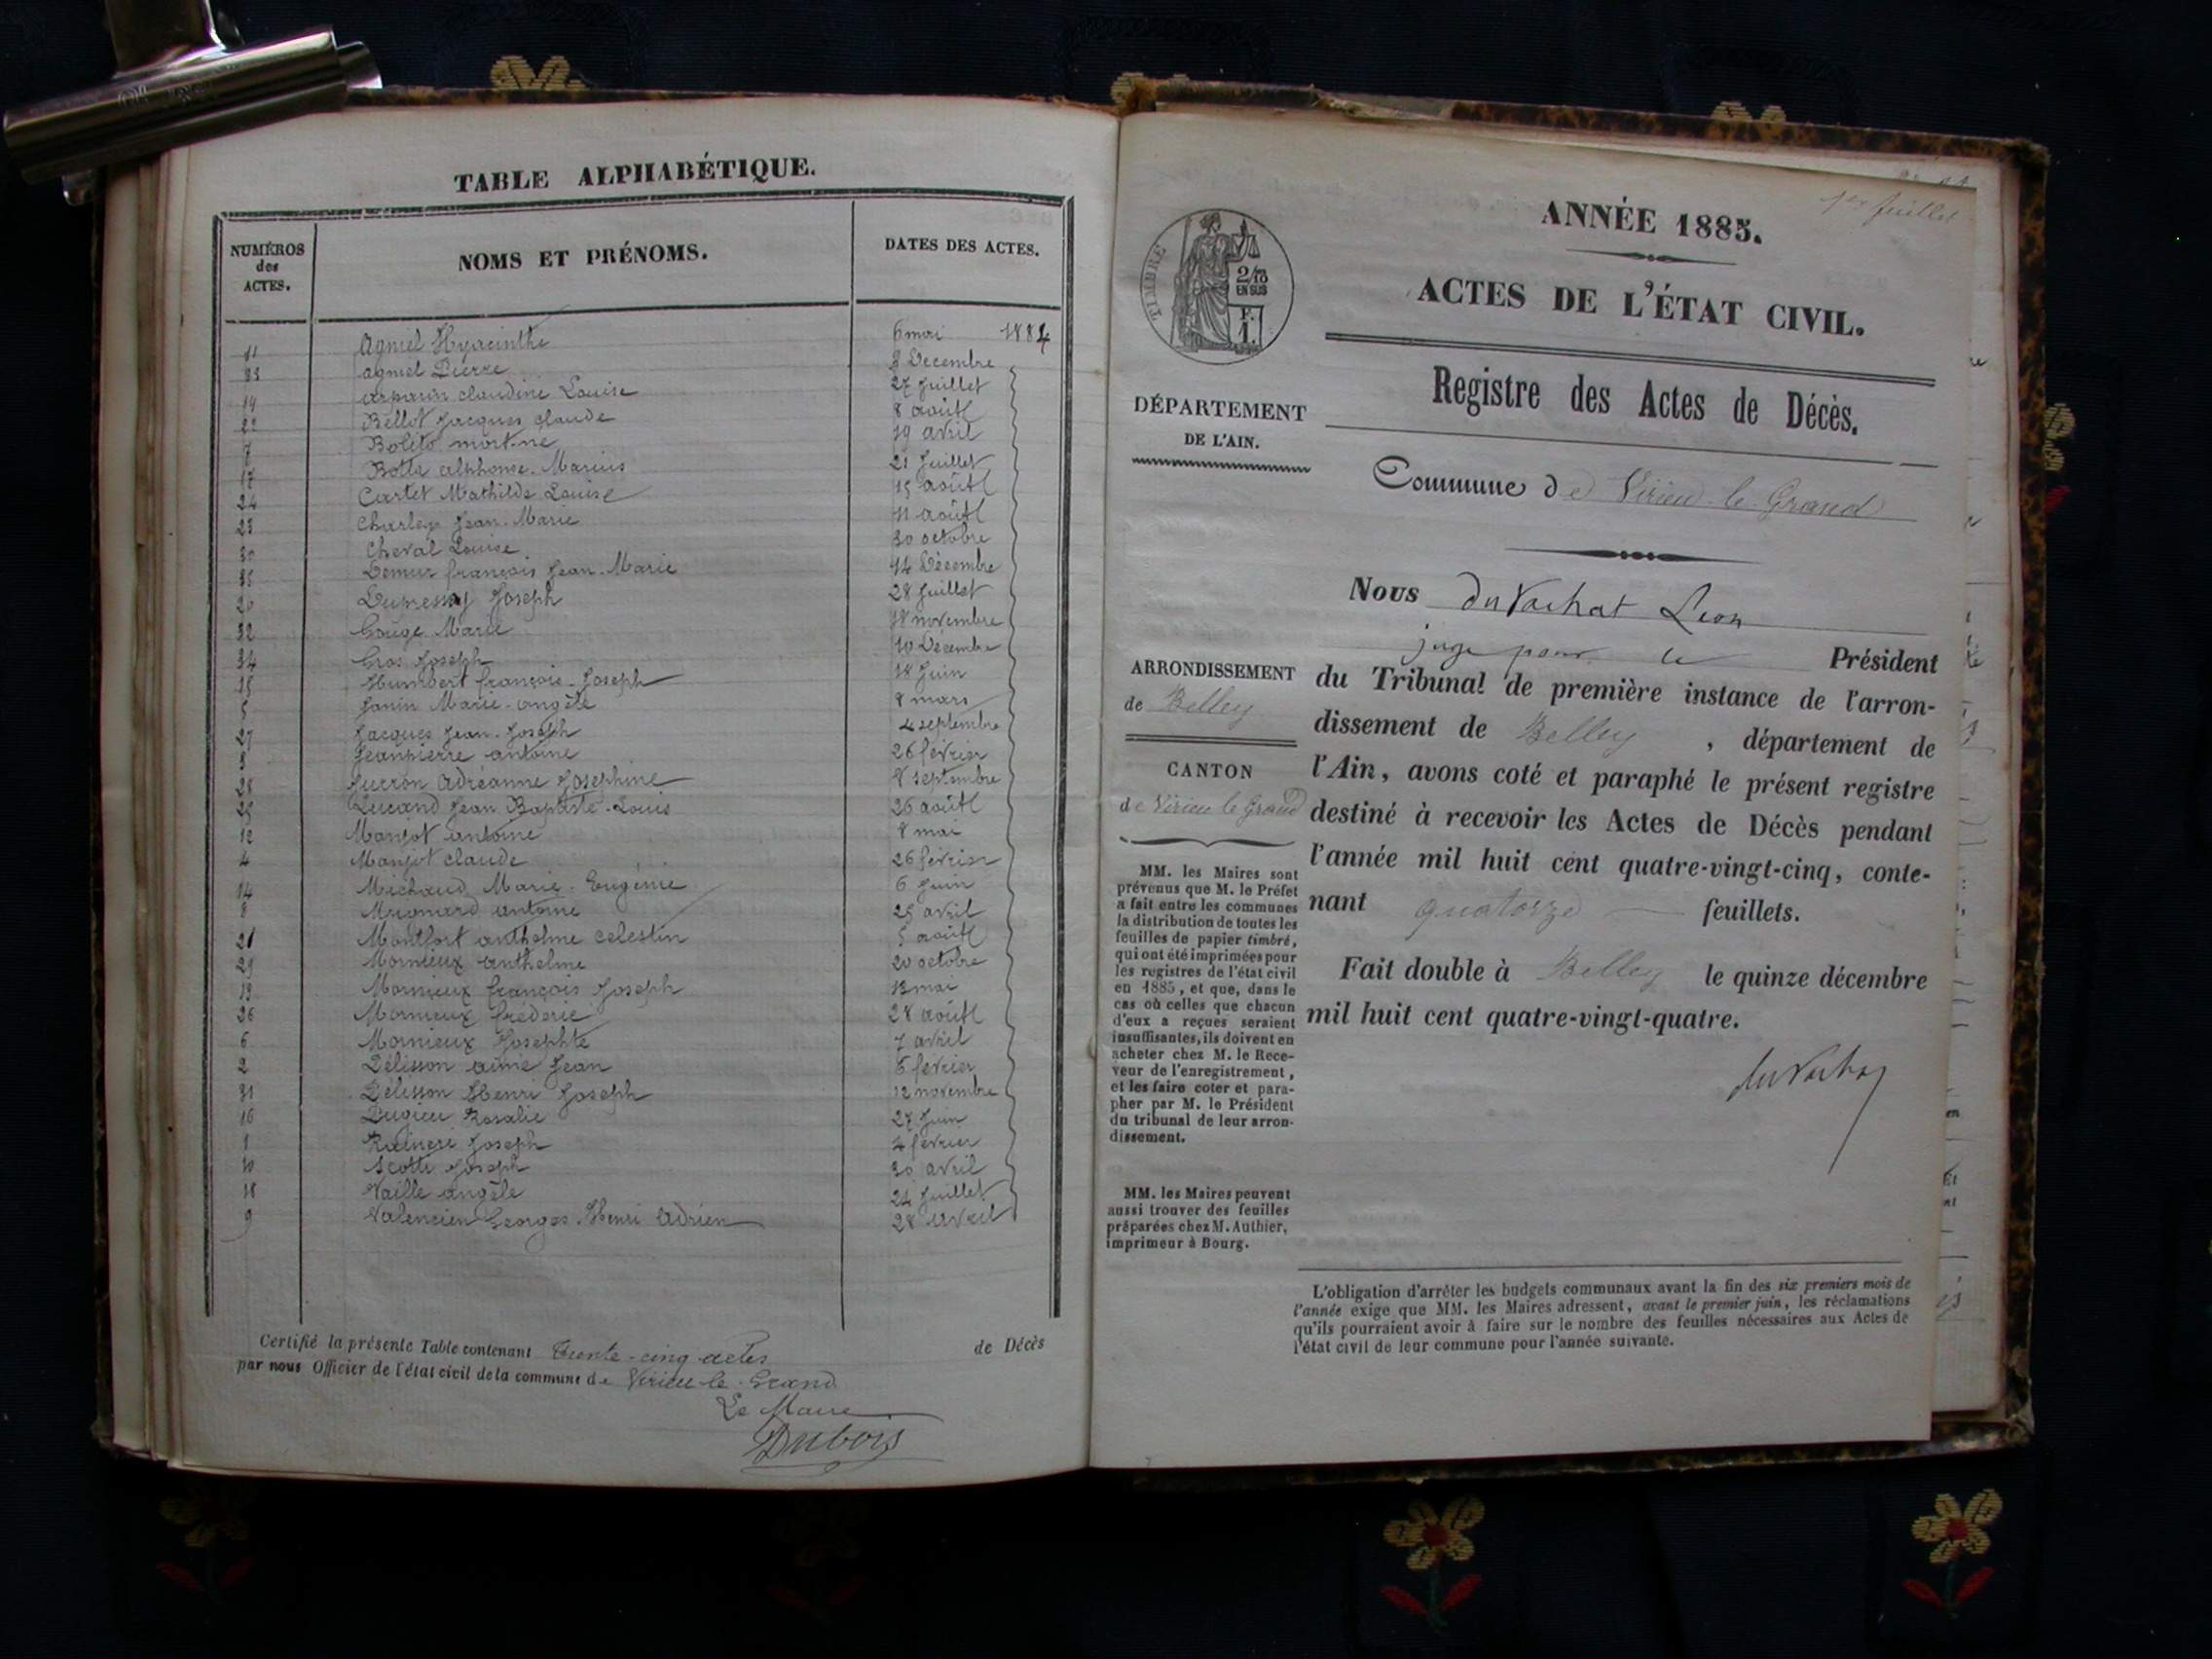 TABLE ALPHABÉTIQUE.
NUMÉROS des ACTES.
NOMS ET PRÉNOMS.
DATES DES ACTES.
11 Agniel Hyacinthe 6 mai 1884
33 Agniel Pierre 8 Decembre
19 Claudine Louise 27 Juillet
22 Bellot Jacques Claude 8 août
7 mort-ne 19 avril
17 Botta alphonse-Marius 21 Juillet
24 Cartet Mathilde Louise 15 août
23 Charley Jean-Marie 11 août
30 Cheval Louise 30 octobre
35 François Jean-Marie Décembre
20 Dupressoy Joseph 28 Juillet
32 Gouge Marie 18 novembre
34 Gros Joseph 10 Décembre
15 Humbert françois-Joseph 18 Juin
5 Janin Marie-angèle 8 mars
27 Jacques Jean-Joseph 4 septembre
3 Jeanpierre antoine 26 février
28 Adréanne Josephine 8 septembre
25 Lucand Jean Baptiste-Louis 26 août
12 Manjot antoine 8 mai
4 Manjot claude 26 février
14 Michaud Marie-Eugénie 6 Juin
8 antoine 25 avril
21 Montfort anthelme celestin 5 août
29 Mornieux anthelme 20 octobre
13 Mornieux françois Joseph 13 mai
26 Mornieux fréderic 28 août
6 Mornieux Josephte 7 avril
2 Pélisson aimé Jean 6 février
31 Pélisson Henri Joseph 12 novembre
16 Pugieu Rosalie 27 Juin
1 Raineri Joseph 4 février
10 Scotti Joseph 30 avril
18 Vaille angèle 24 Juillet
9 Valencien Georges-Henri Adrien 28 avril
Certifié la présente Table contenant Trente-cinq actes de Décès
par nous Officier de l'état civil de la commune de Virieu-le-Grand
Le Maire
Dubois
1er feuillet
TIMBRE
2/10
EN SUS
F.
1.
ANNÉE 1885.
ACTES DE L'ÉTAT CIVIL.
Registre des Actes de Décès.
DÉPARTEMENT
DE L'AIN.
Commune de Virieu-le-Grand
ARRONDISSEMENT
de Belley
CANTON
de Virieu le Grand
MM. les Maires sont
prévenus que M. le Préfet
a fait entre les communes
la distribution de toutes les
feuilles de papier timbré,
qui ont été imprimées pour
les registres de l'état civil
en 1885, et que, dans le
cas où celles que chacun
d'eux a reçues seraient
insuffisantes, ils doivent en
acheter chez M. le Rece-
veur de l'enregistrement,
et les faire coter et para-
pher par M. le Président
du tribunal de leur arron-
dissement.
MM. les Maires peuvent
aussi trouver des feuilles
préparées chez M. Authier,
imprimeur à Bourg.
Nous du Vachat Léon
juge pour le Président
du Tribunal de première instance de l'arron-
dissement de Belley , département de
l'Ain, avons coté et paraphé le présent registre
destiné à recevoir les Actes de Décès pendant
l'année mil huit cent quatre-vingt-cinq, conte-
nant quatorze feuillets.
Fait double à Belley le quinze décembre
mil huit cent quatre-vingt-quatre.
du Vachat
L'obligation d'arrêter les budgets communaux avant la fin des six premiers mois de
l'année exige que MM. les Maires adressent, avant le premier juin, les réclamations
qu'ils pourraient avoir à faire sur le nombre des feuilles nécessaires aux Actes de
l'état civil de leur commune pour l'année suivante.